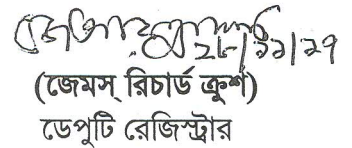 ২৮/১১/২৭
(জেমস্ রিচার্ড ক্রুশ)
ডেপুটি রেজিস্ট্রার